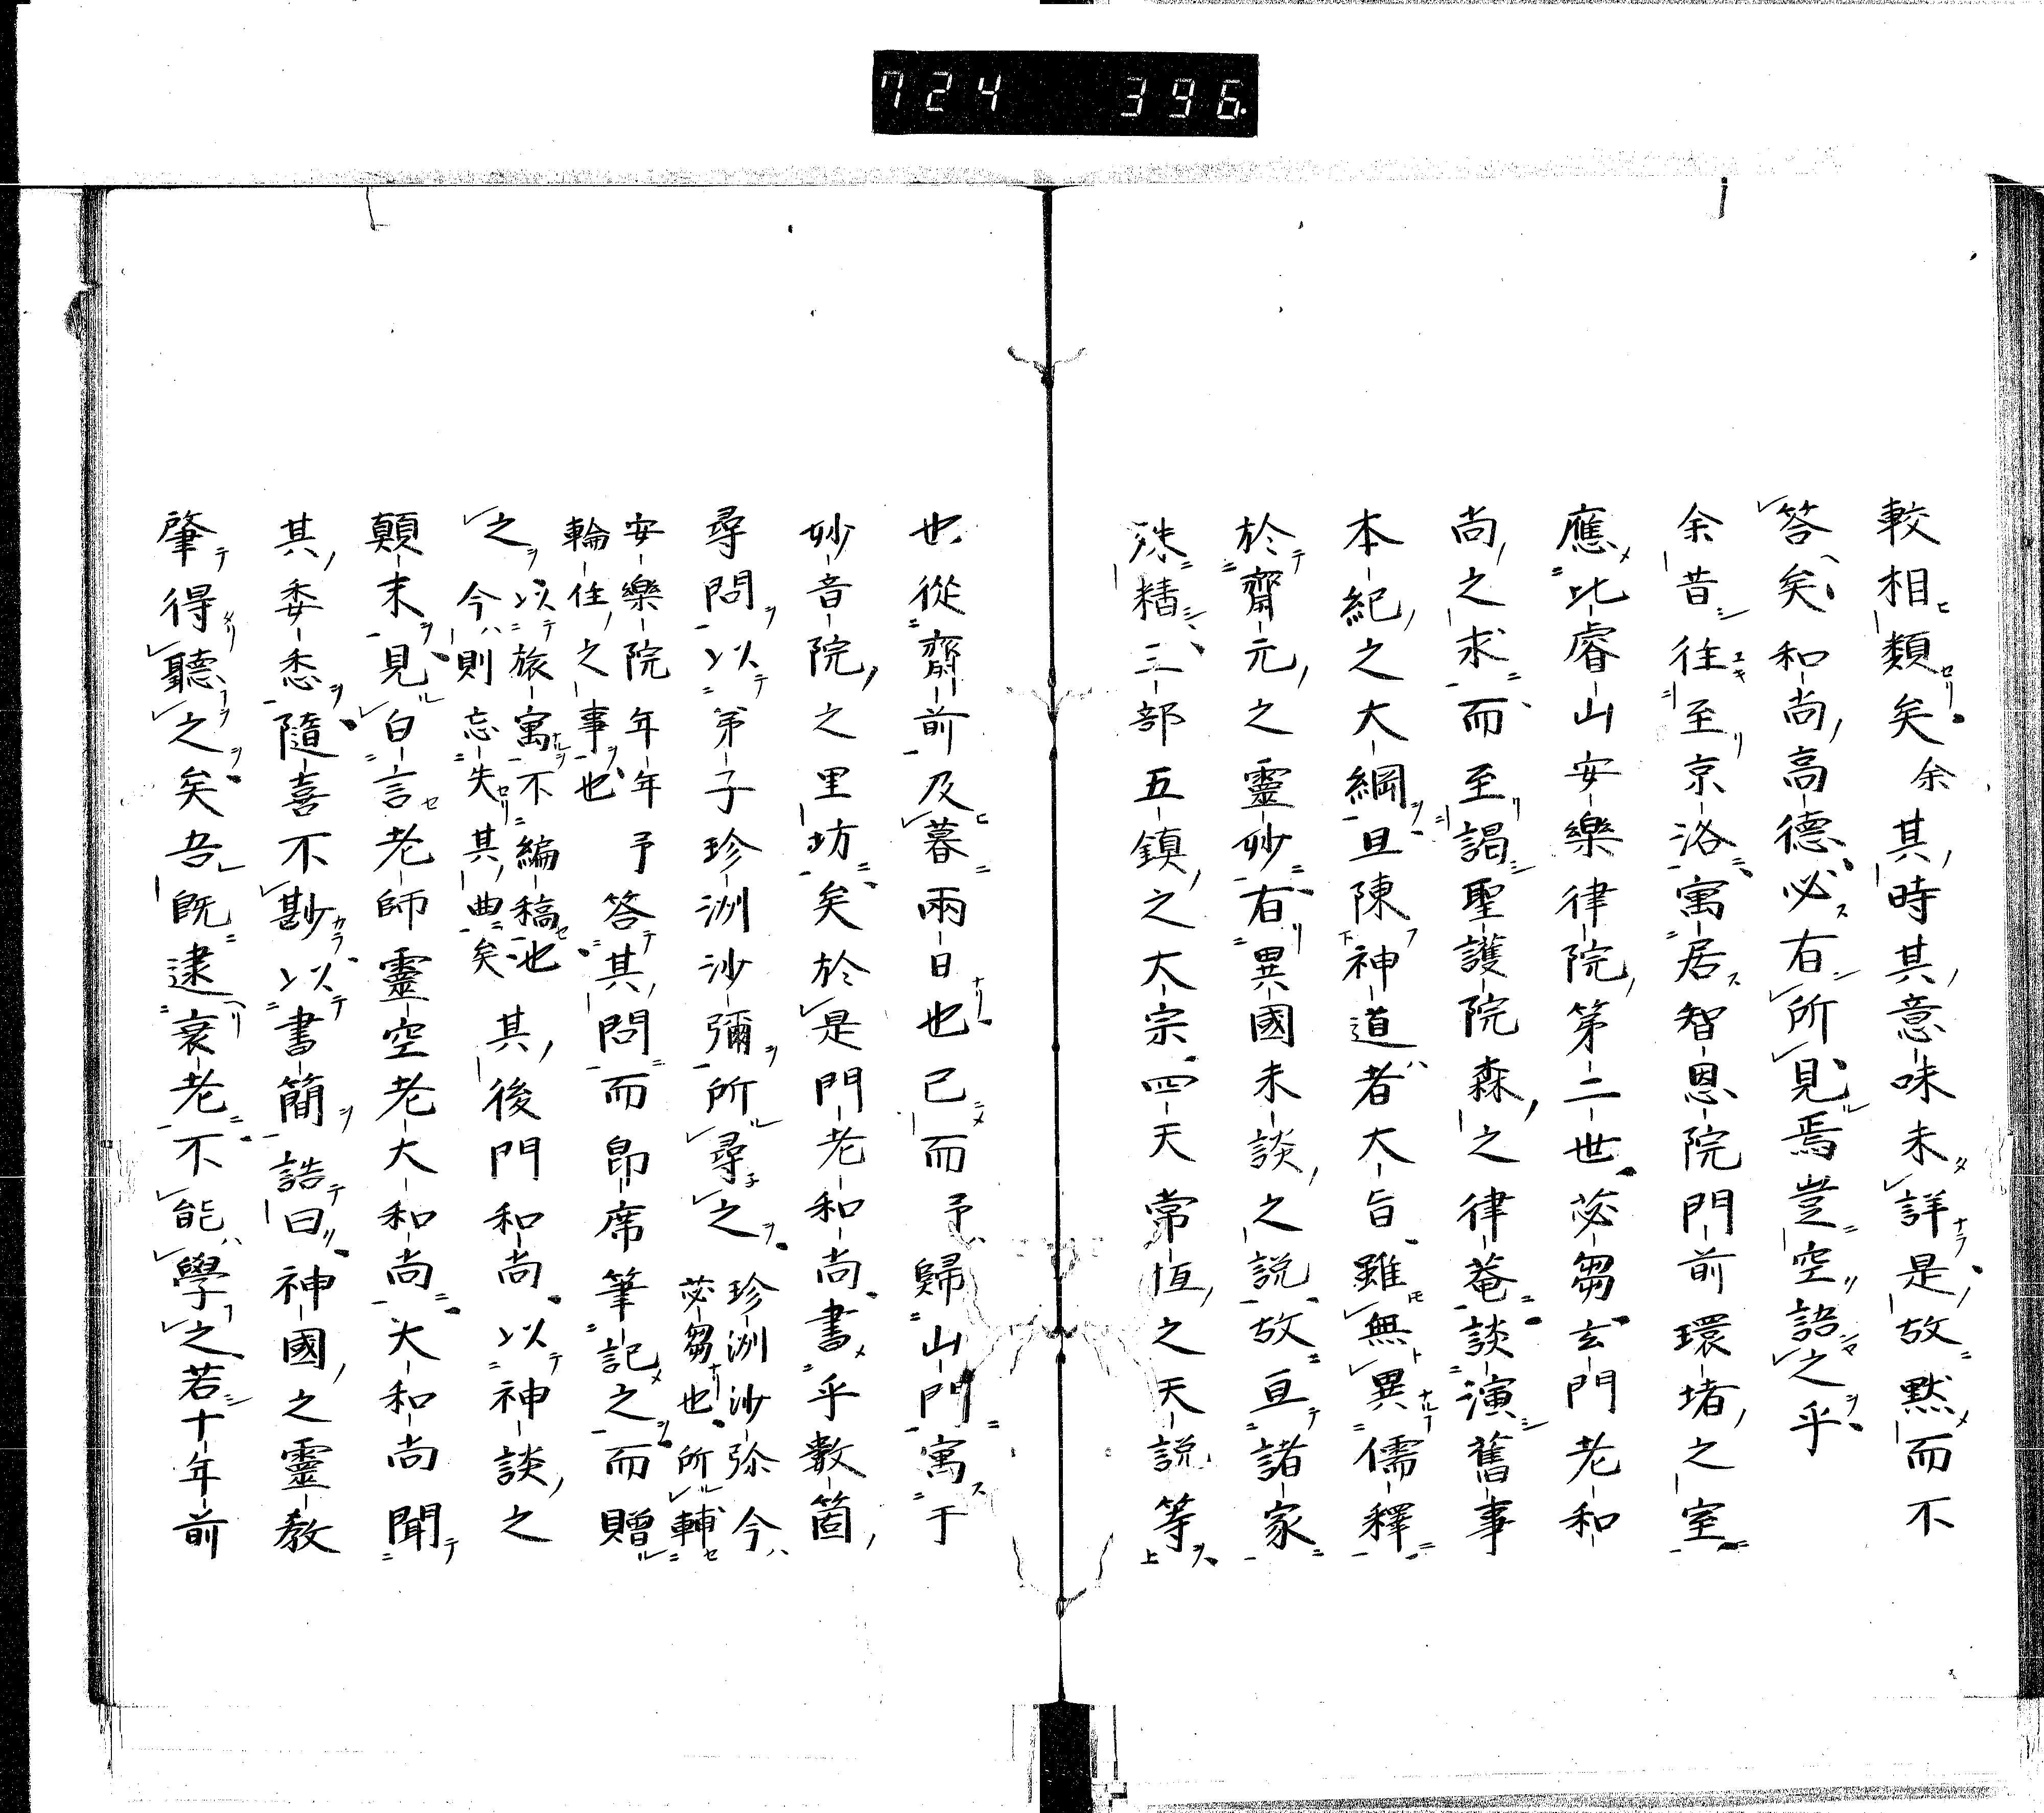 724 396
較相類矣余其時其意味未詳是故黙而不
答矣和尚高德必有所見焉豈空語之乎
余昔往至京洛寓居智恩院門前環堵之室
應比睿山安樂律院第二世苾芻玄門老和
尚之求而至謁聖護院森之律菴談演舊事
本紀之大綱且陳神道者大旨雖無異儒釋
於齋元之靈妙有異國未談之說故亘諸家
殊糈三部五鎮之大宗四天常恒之天說等
也從齋前及暮兩日也已而予歸山門寓于
妙音院之里坊矣於是門老和尚書乎數箇
尋問以弟子珍洲沙彌所尋之 珍洲沙弥今
苾芻也所輔
安樂院年年
輪住之事也 予答其問而昂席筆記之而贈
之 以旅寓不編稿也
今則忘失其曲矣 其後門和尚以神談之
顛末見白言老師靈空老大和尚大和尚聞
其委悉隨喜不尠以書簡誥曰神國之靈教
肇得聽之矣吾既逮衰老不能學之若十年前